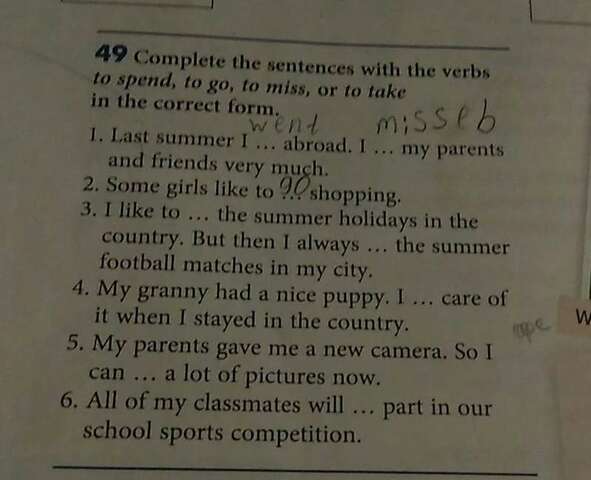 49 Complete the sentences with the verbs
to spend, to go, to miss, or to take
in the correct form.
went missed
1. Last summer I ... abroad. I ... my parents
and friends very much.
2. Some girls like to go ... shopping.
3. I like to ... the summer holidays in the
country. But then I always ... the summer
football matches in my city.
4. My granny had a nice puppy. I ... care of
it when I stayed in the country.
5. My parents gave me a new camera. So I
can ... a lot of pictures now.
6. All of my classmates will ... part in our
school sports competition.
W